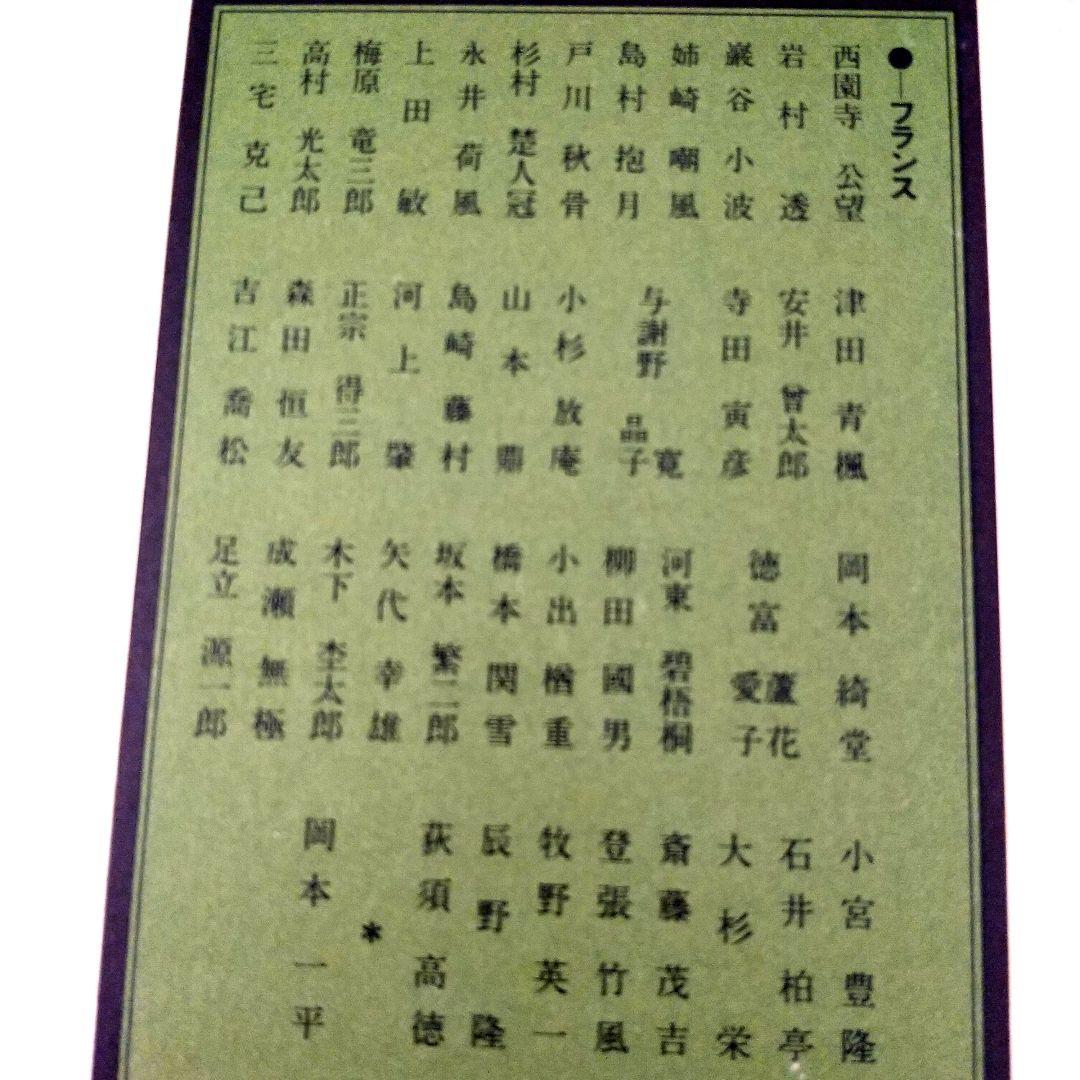 ●―フランス
西園寺 公望
岩村 透
巌谷 小波
姉崎 嘲風
島村 抱月
戸川 秋骨
杉村 楚人冠
永井 荷風
上田 敏
梅原 竜三郎
高村 光太郎
三宅 克己
津田 青楓
安井 曾太郎
寺田 寅彦
与謝野 寛
晶子
小杉 放庵
山本 鼎
島崎 藤村
河上 肇
正宗 得三郎
森田 恒友
吉江 喬松
岡本 綺堂
徳富 蘆花
愛子
河東 碧梧桐
柳田 國男
小出 楢重
橋本 関雪
坂本 繁二郎
矢代 幸雄
木下 杢太郎
成瀬 無極
足立 源一郎
小宮 豊隆
石井 柏亭
大杉 栄
斎藤 茂吉
登張 竹風
牧野 英一
辰野 隆
荻須 高徳
*
岡本 一平